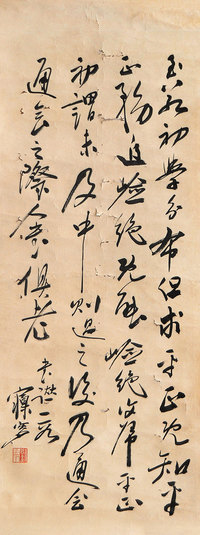 至如初學分布但求平正既知平
正務追險絕既能險絕復歸平正
初謂未及中則過之後乃通會
通會之際人書俱老
書譜一段